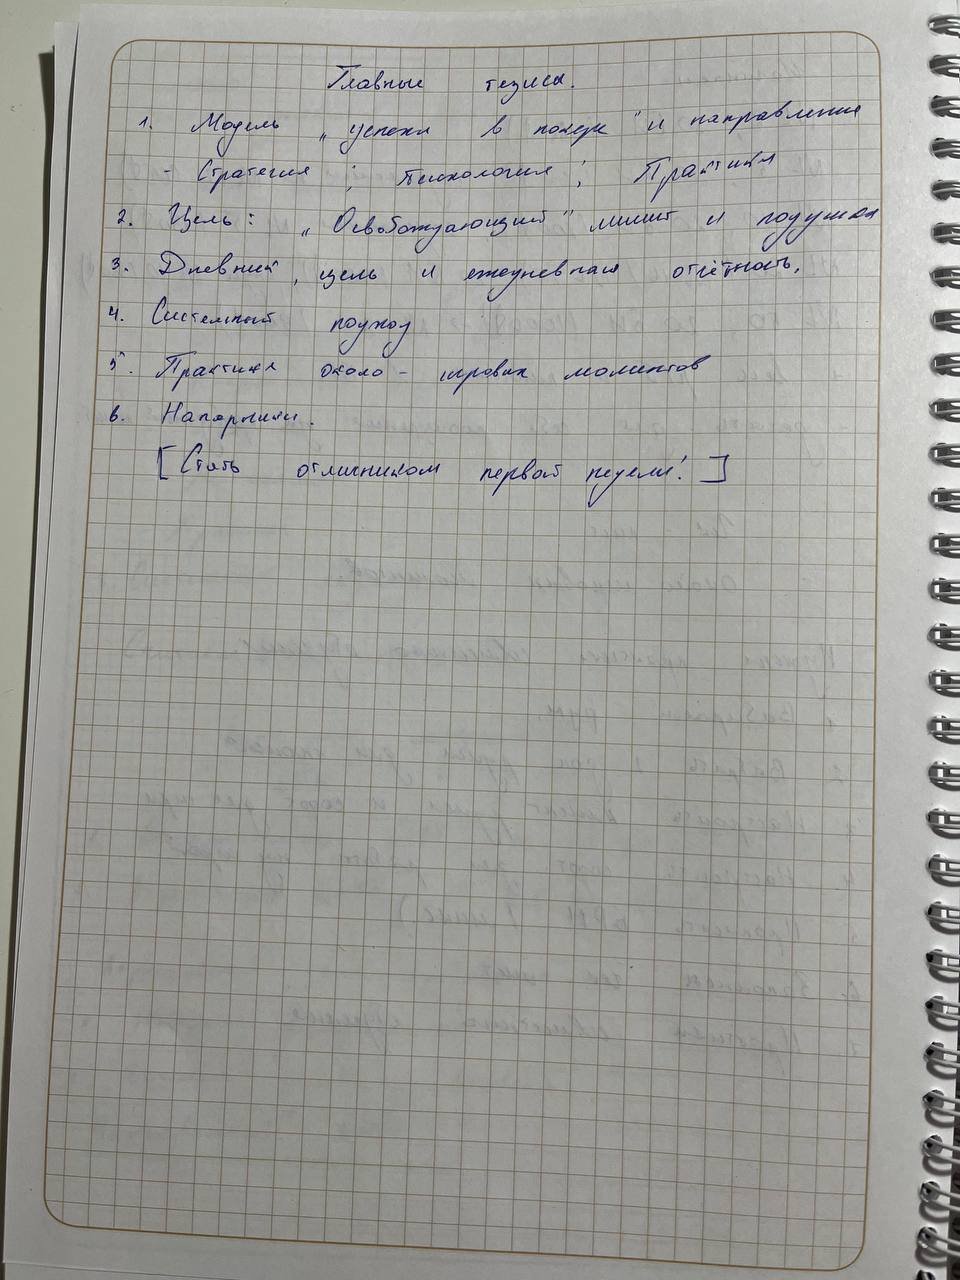 Главные тезисы.
1. Модель "успеха в покере" и направления
- Стратегия ; Психология ; Практика
2. Цель: "Освобождающий" лимит и подушка
3. Дневник, цель и ежедневная отчётность.
4. Системный подход
5. Практика около - игровых моментов
6. Напарники.
[Стать отличником первой недели!]